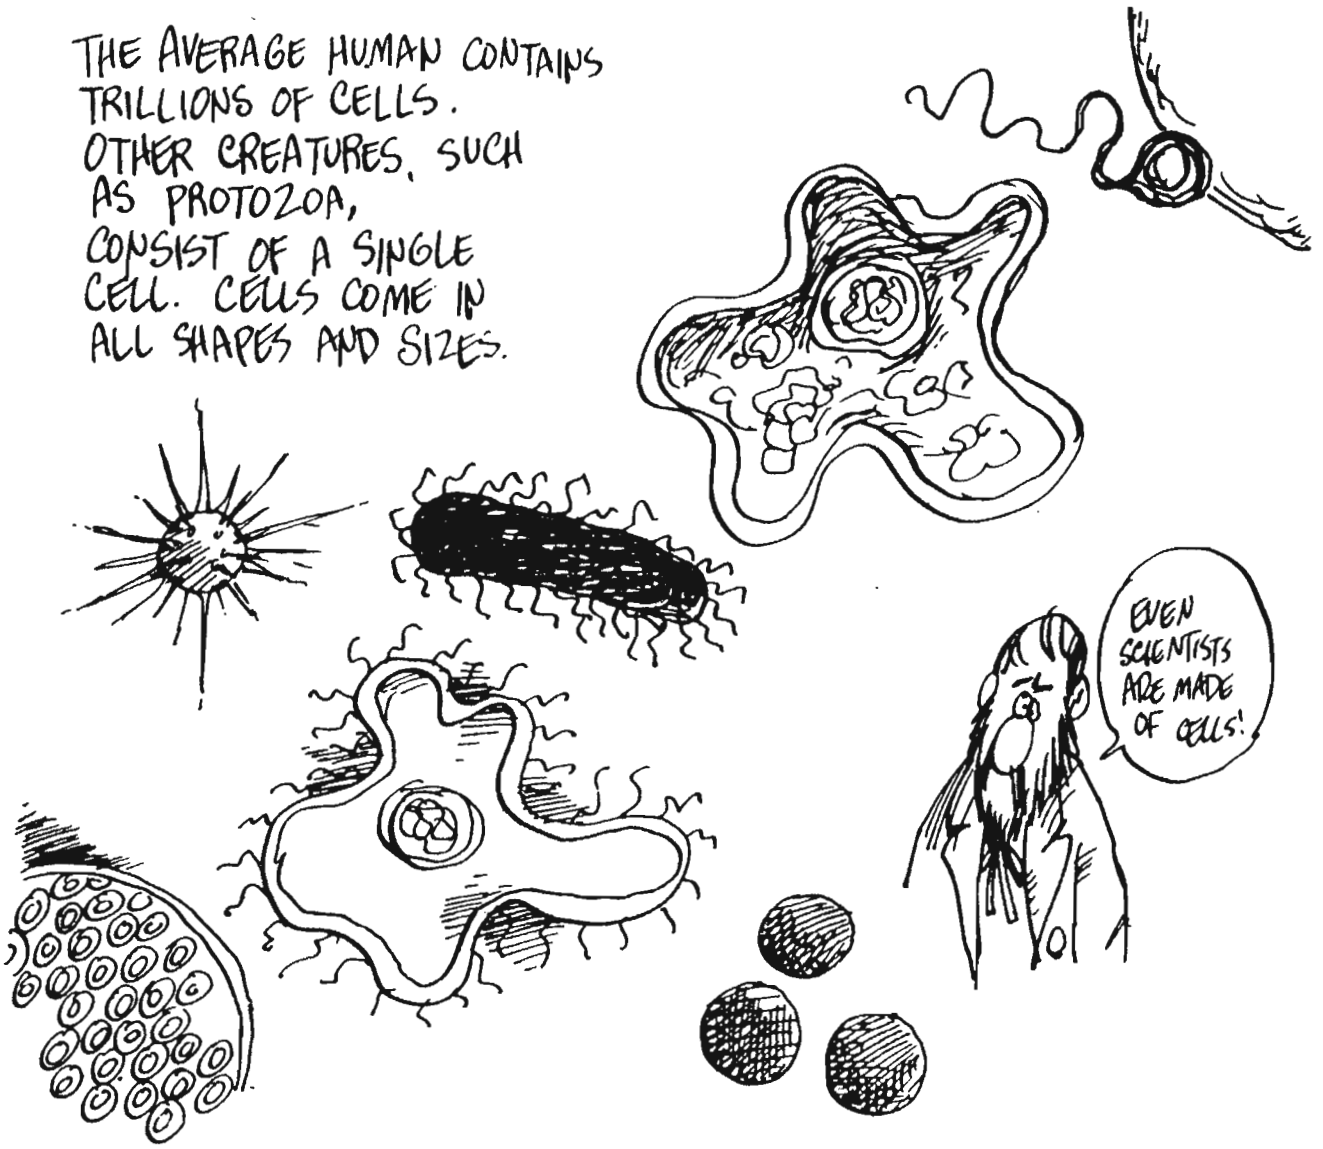 THE AVERAGE HUMAN CONTAINS
TRILLIONS OF CELLS.
OTHER CREATURES, SUCH
AS PROTOZOA,
CONSIST OF A SINGLE
CELL. CELLS COME IN
ALL SHAPES AND SIZES.
EVEN
SCIENTISTS
ARE MADE
OF CELLS!